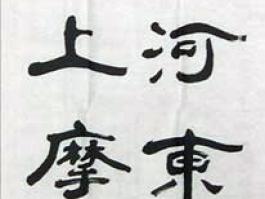 河東
上摩